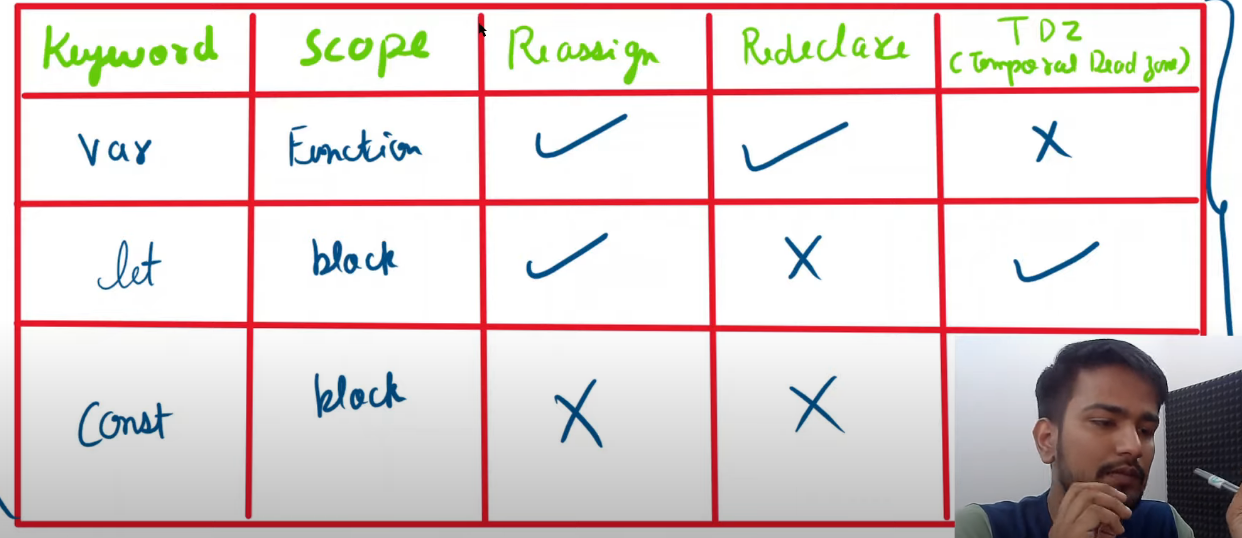 Keyword Scope Reassign Redeclare TDZ
(Temporal Dead zone)
var Function ✓ ✓ X
let block ✓ X ✓
Const block X X